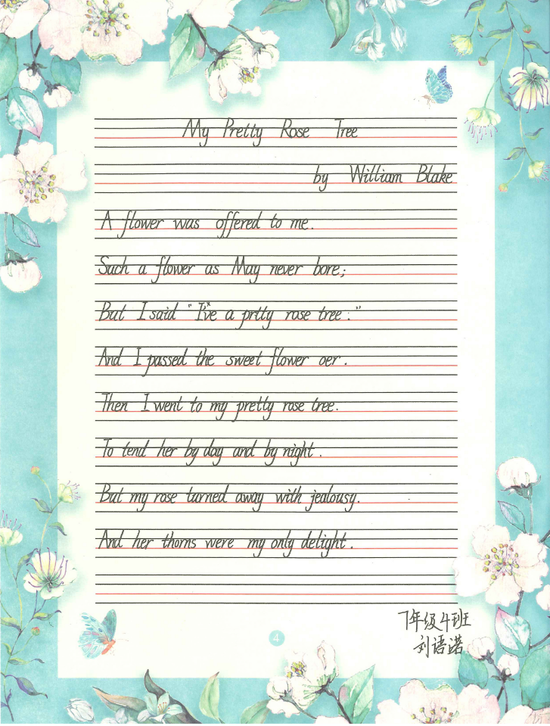 My Pretty Rose Tree
by William Blake
A flower was offered to me.
Such a flower as May never bore;
But I said "I've a prtty rose tree."
And I passed the sweet flower oer.
Then I went to my pretty rose tree.
To tend her by day and by night.
But my rose turned away with jealousy.
And her thorns were my only delight.
4
7年级4班
刘语诺